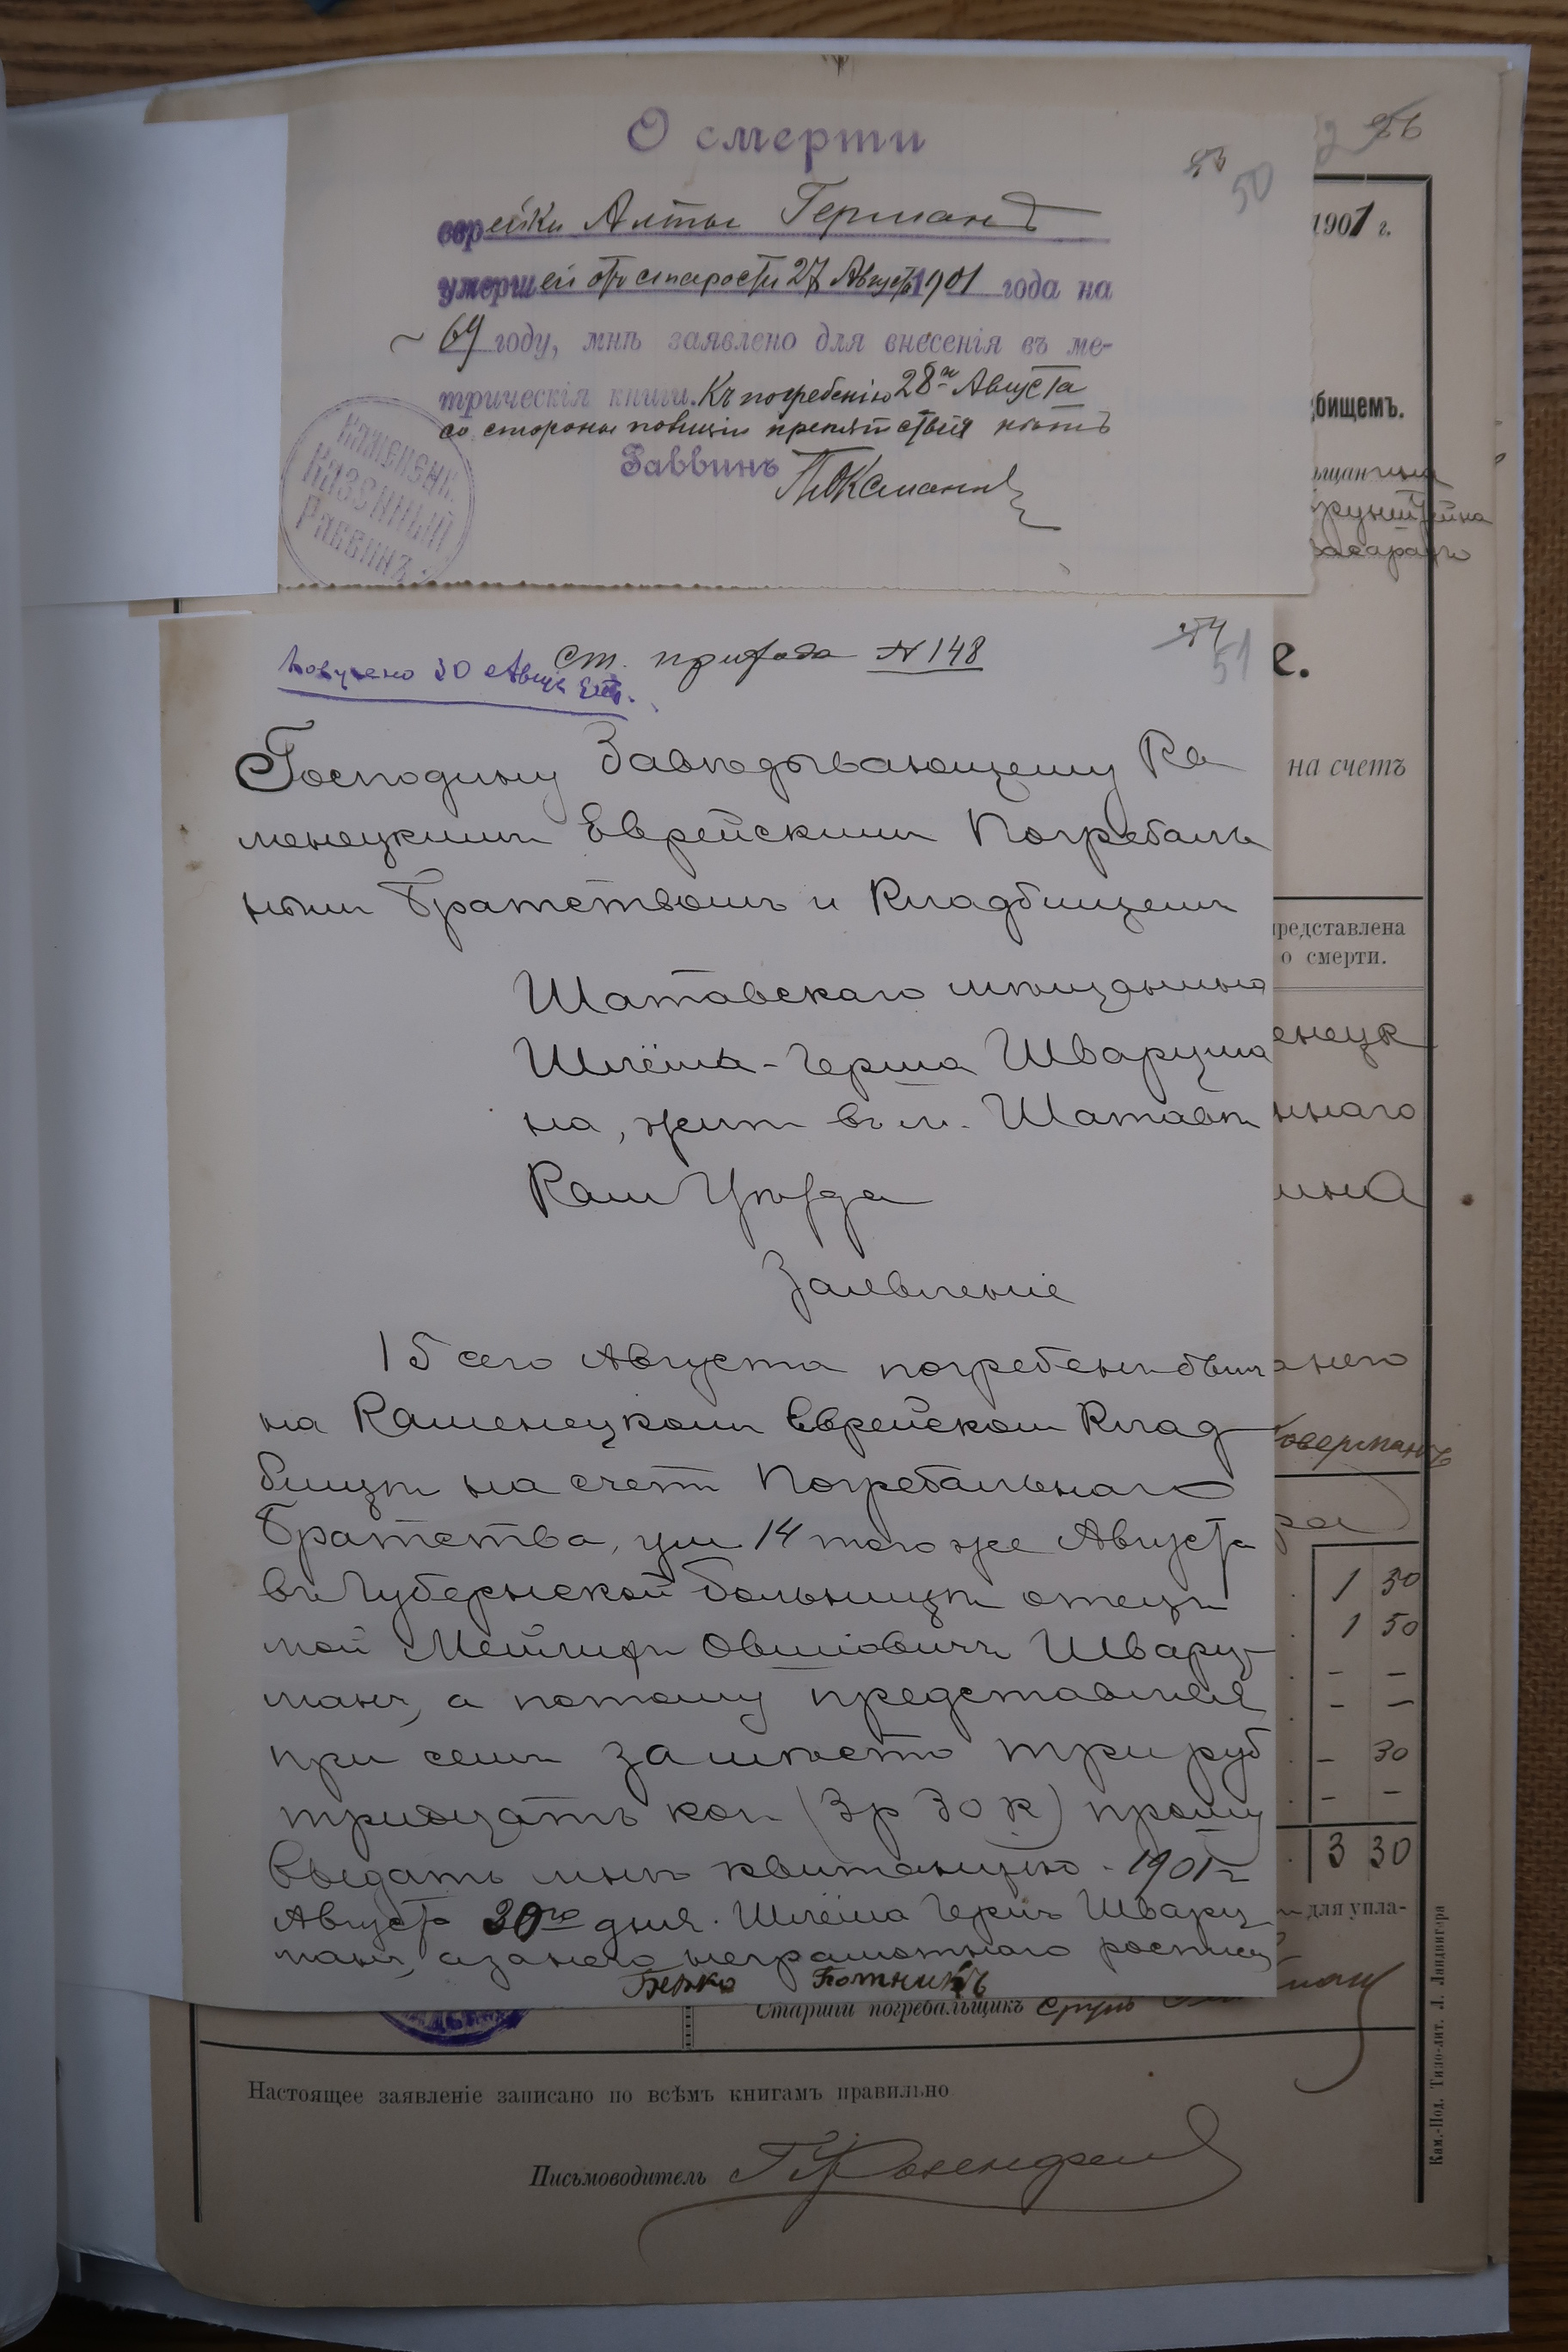 О смерти
53 50
еврейки Алты Германъ
умершей отъ старости 27 Августа 1901 года на
69 году, мнѣ заявлено для внесенія въ ме-
трическія книги. Къ погребенію 28го Августа
со стороны полиціи препятствія нѣтъ
Раввинъ
Каменецк.
Казенный
Раввинъ
56
1901 г.
бищемъ.
51
Получено 30 Авгус
Ст. прихода № 148
Господину Завѣдывающему Ка
менецкимъ Еврейскимъ Погребаль
нымъ Братствомъ и Кладбищемъ
Шатавскаго мѣщанина
Шлёма-Герша Шварцма
на, жит въ м. Шатавѣ
Кам Уѣзда
Заявленіе
15 сего Августа погребенъ былъ
на Каменецкомъ Еврейском Клад
бищѣ на счетъ Погребальнаго
Братства, ум 14 того же Августа
въ Губернской больницѣ отецъ
мой Овшіовичъ Шварц-
манъ, а потому представляя
при семъ за мѣсто три руб
тридцать коп (3р 30 к) прошу
выдать мнѣ квитанцію. 1901 г
Августа 30го дня. Шлёма Гершъ Шварц
манъ, а за него неграмотнаго роспис
Берко
е.
на счетъ
представлена
о смерти.
енецк
ннаго
ина
1 50
- -
- -
- 30
- -
3 30
для упла-
Старшій погребальщикъ Сруль
Настоящее заявленіе записано по всѣмъ книгамъ правильно
Письмоводитель
Кам.-Под. Типо-лит. Л. Ландвигера